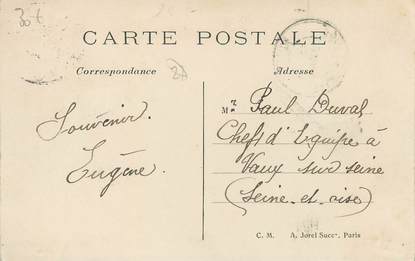 30 €
CARTE POSTALE
Correspondance
Adresse
Souvenir.
Eugène.
Mr Paul Duval
Chef d'Equipe à
Vaux sur seine
(Seine-et-oise)
C. M. A. Jorel Succr, Paris